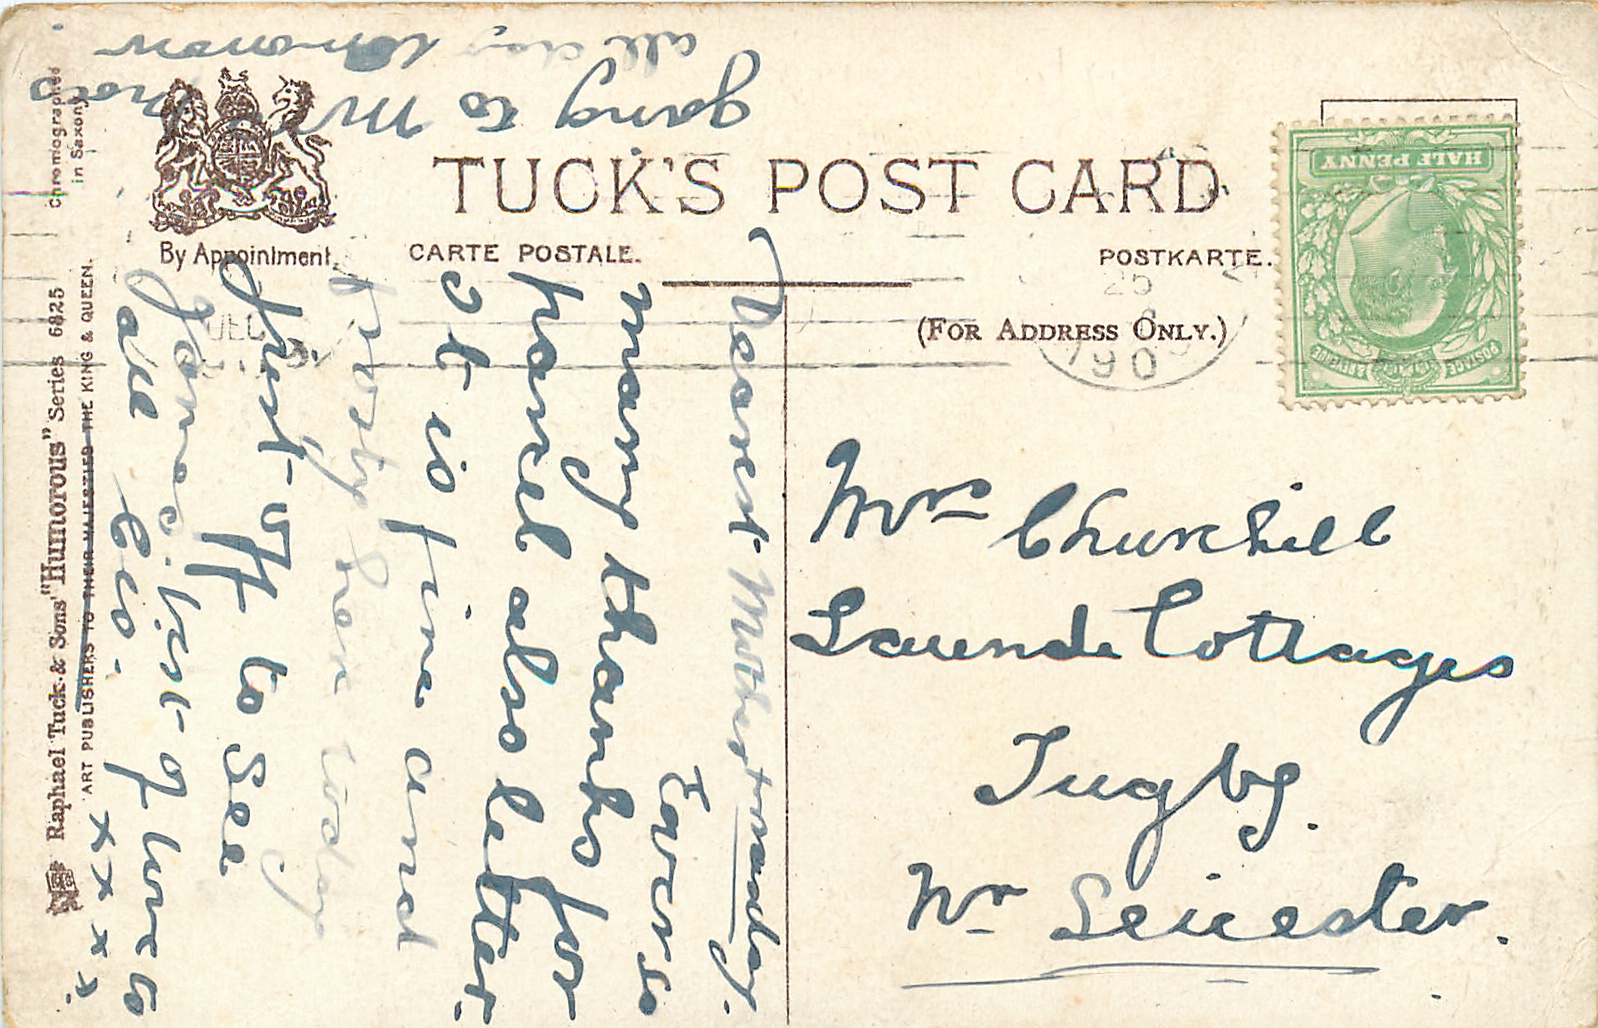 TUCK'S POST CARD
By Appointment.
CARTE POSTALE.
POSTKARTE.
(FOR ADDRESS ONLY.)
HALF PENNY
POSTAGE & REVENUE
25
190
DEC
Mrs Churchill
Launde Cottages
Tugby.
Nr Leicester.
Dearest Mother
many thanks for
parcel also letter.
It is fine and
frosty here today
Just off to see
Jones. best of love to
all
x x x x x
going to Mrs
all day tomorrow
Raphael Tuck & Sons' "Humorous" Series 6825
ART PUBLISHERS TO THEIR MAJESTIES THE KING & QUEEN.
Chromographed
in Saxony